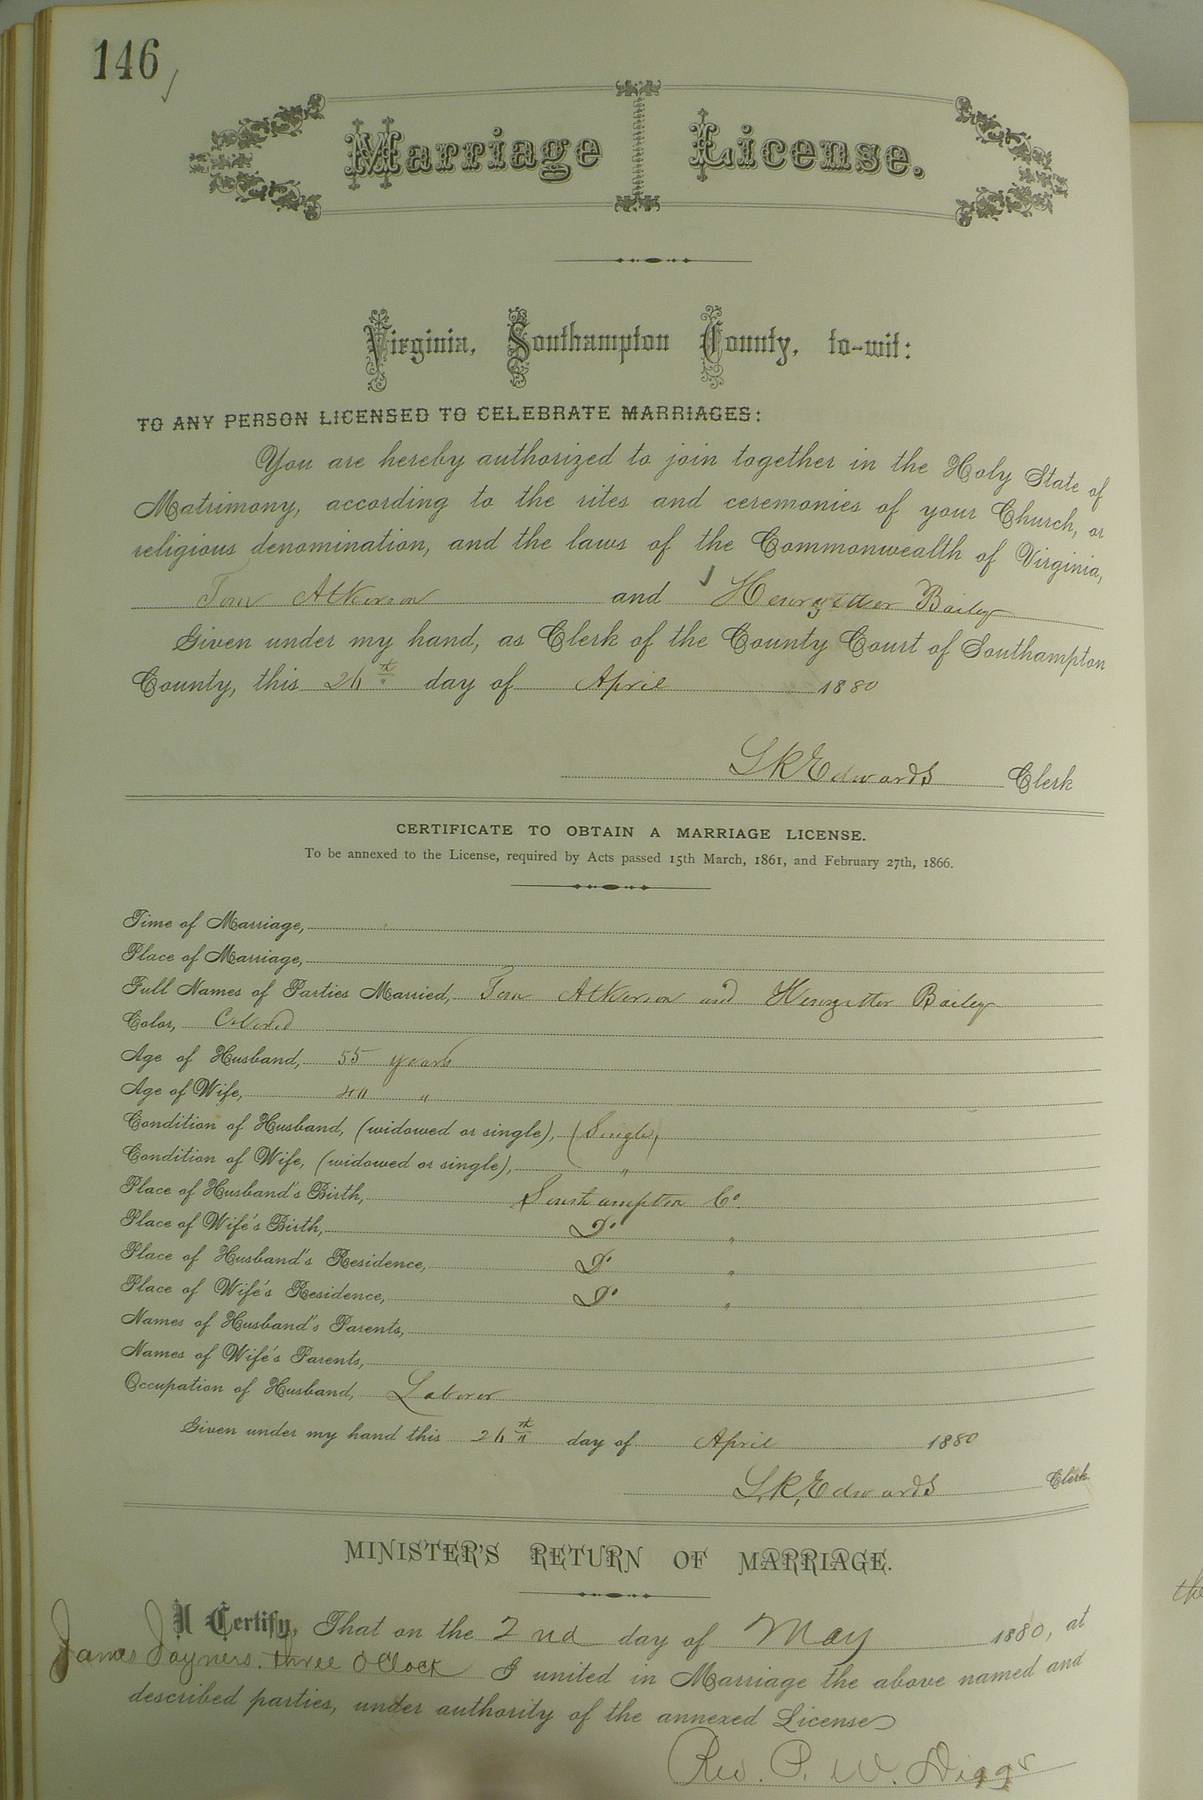 146
Marriage License.
Virginia, Southampton County, to-wit:
TO ANY PERSON LICENSED TO CELEBRATE MARRIAGES:
You are hereby authorized to join together in the Holy State of
Matrimony, according to the rites and ceremonies of your Church, or
religious denomination, and the laws of the Commonwealth of Virginia,
Tom Atkerson and Henrgetter Bailey
Given under my hand, as Clerk of the County Court of Southampton
County, this 26th day of April 1880
L R Edwards Clerk
CERTIFICATE TO OBTAIN A MARRIAGE LICENSE.
To be annexed to the License, required by Acts passed 15th March, 1861, and February 27th, 1866.
Time of Marriage,
Place of Marriage,
Full Names of Parties Married, Tom Atkerson and Henrgetter Bailey
Color, Colored
Age of Husband, 55 years
Age of Wife, 40 "
Condition of Husband, (widowed or single), (Single)
Condition of Wife, (widowed or single), "
Place of Husband's Birth, Southampton Co.
Place of Wife's Birth, Do "
Place of Husband's Residence, Do "
Place of Wife's Residence, Do "
Names of Husband's Parents,
Names of Wife's Parents,
Occupation of Husband, Laborer
Given under my hand this 26th day of April 1880
L. R. Edwards Clerk
MINISTER'S RETURN OF MARRIAGE.
I Certify, That on the 2nd day of May 1880, at
James Joyners. three OClock I united in Marriage the above named and
described parties, under authority of the annexed License
Rev. P. W. Diggs
the